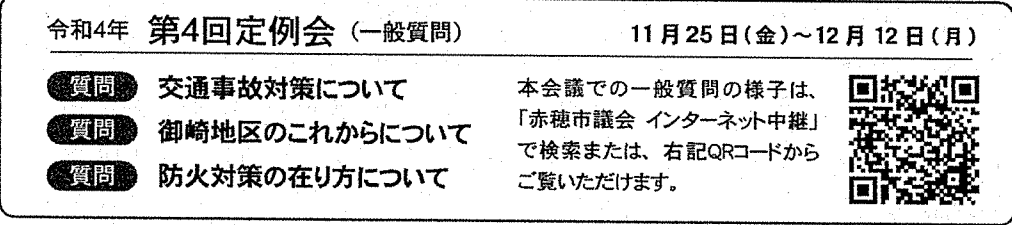 令和4年 第4回定例会（一般質問） 11月25日（金）～12月12日（月）
質問 交通事故対策について
質問 御崎地区のこれからについて
質問 防火対策の在り方について
本会議での一般質問の様子は、
「赤穂市議会 インターネット中継」
で検索または、右記QRコードから
ご覧いただけます。